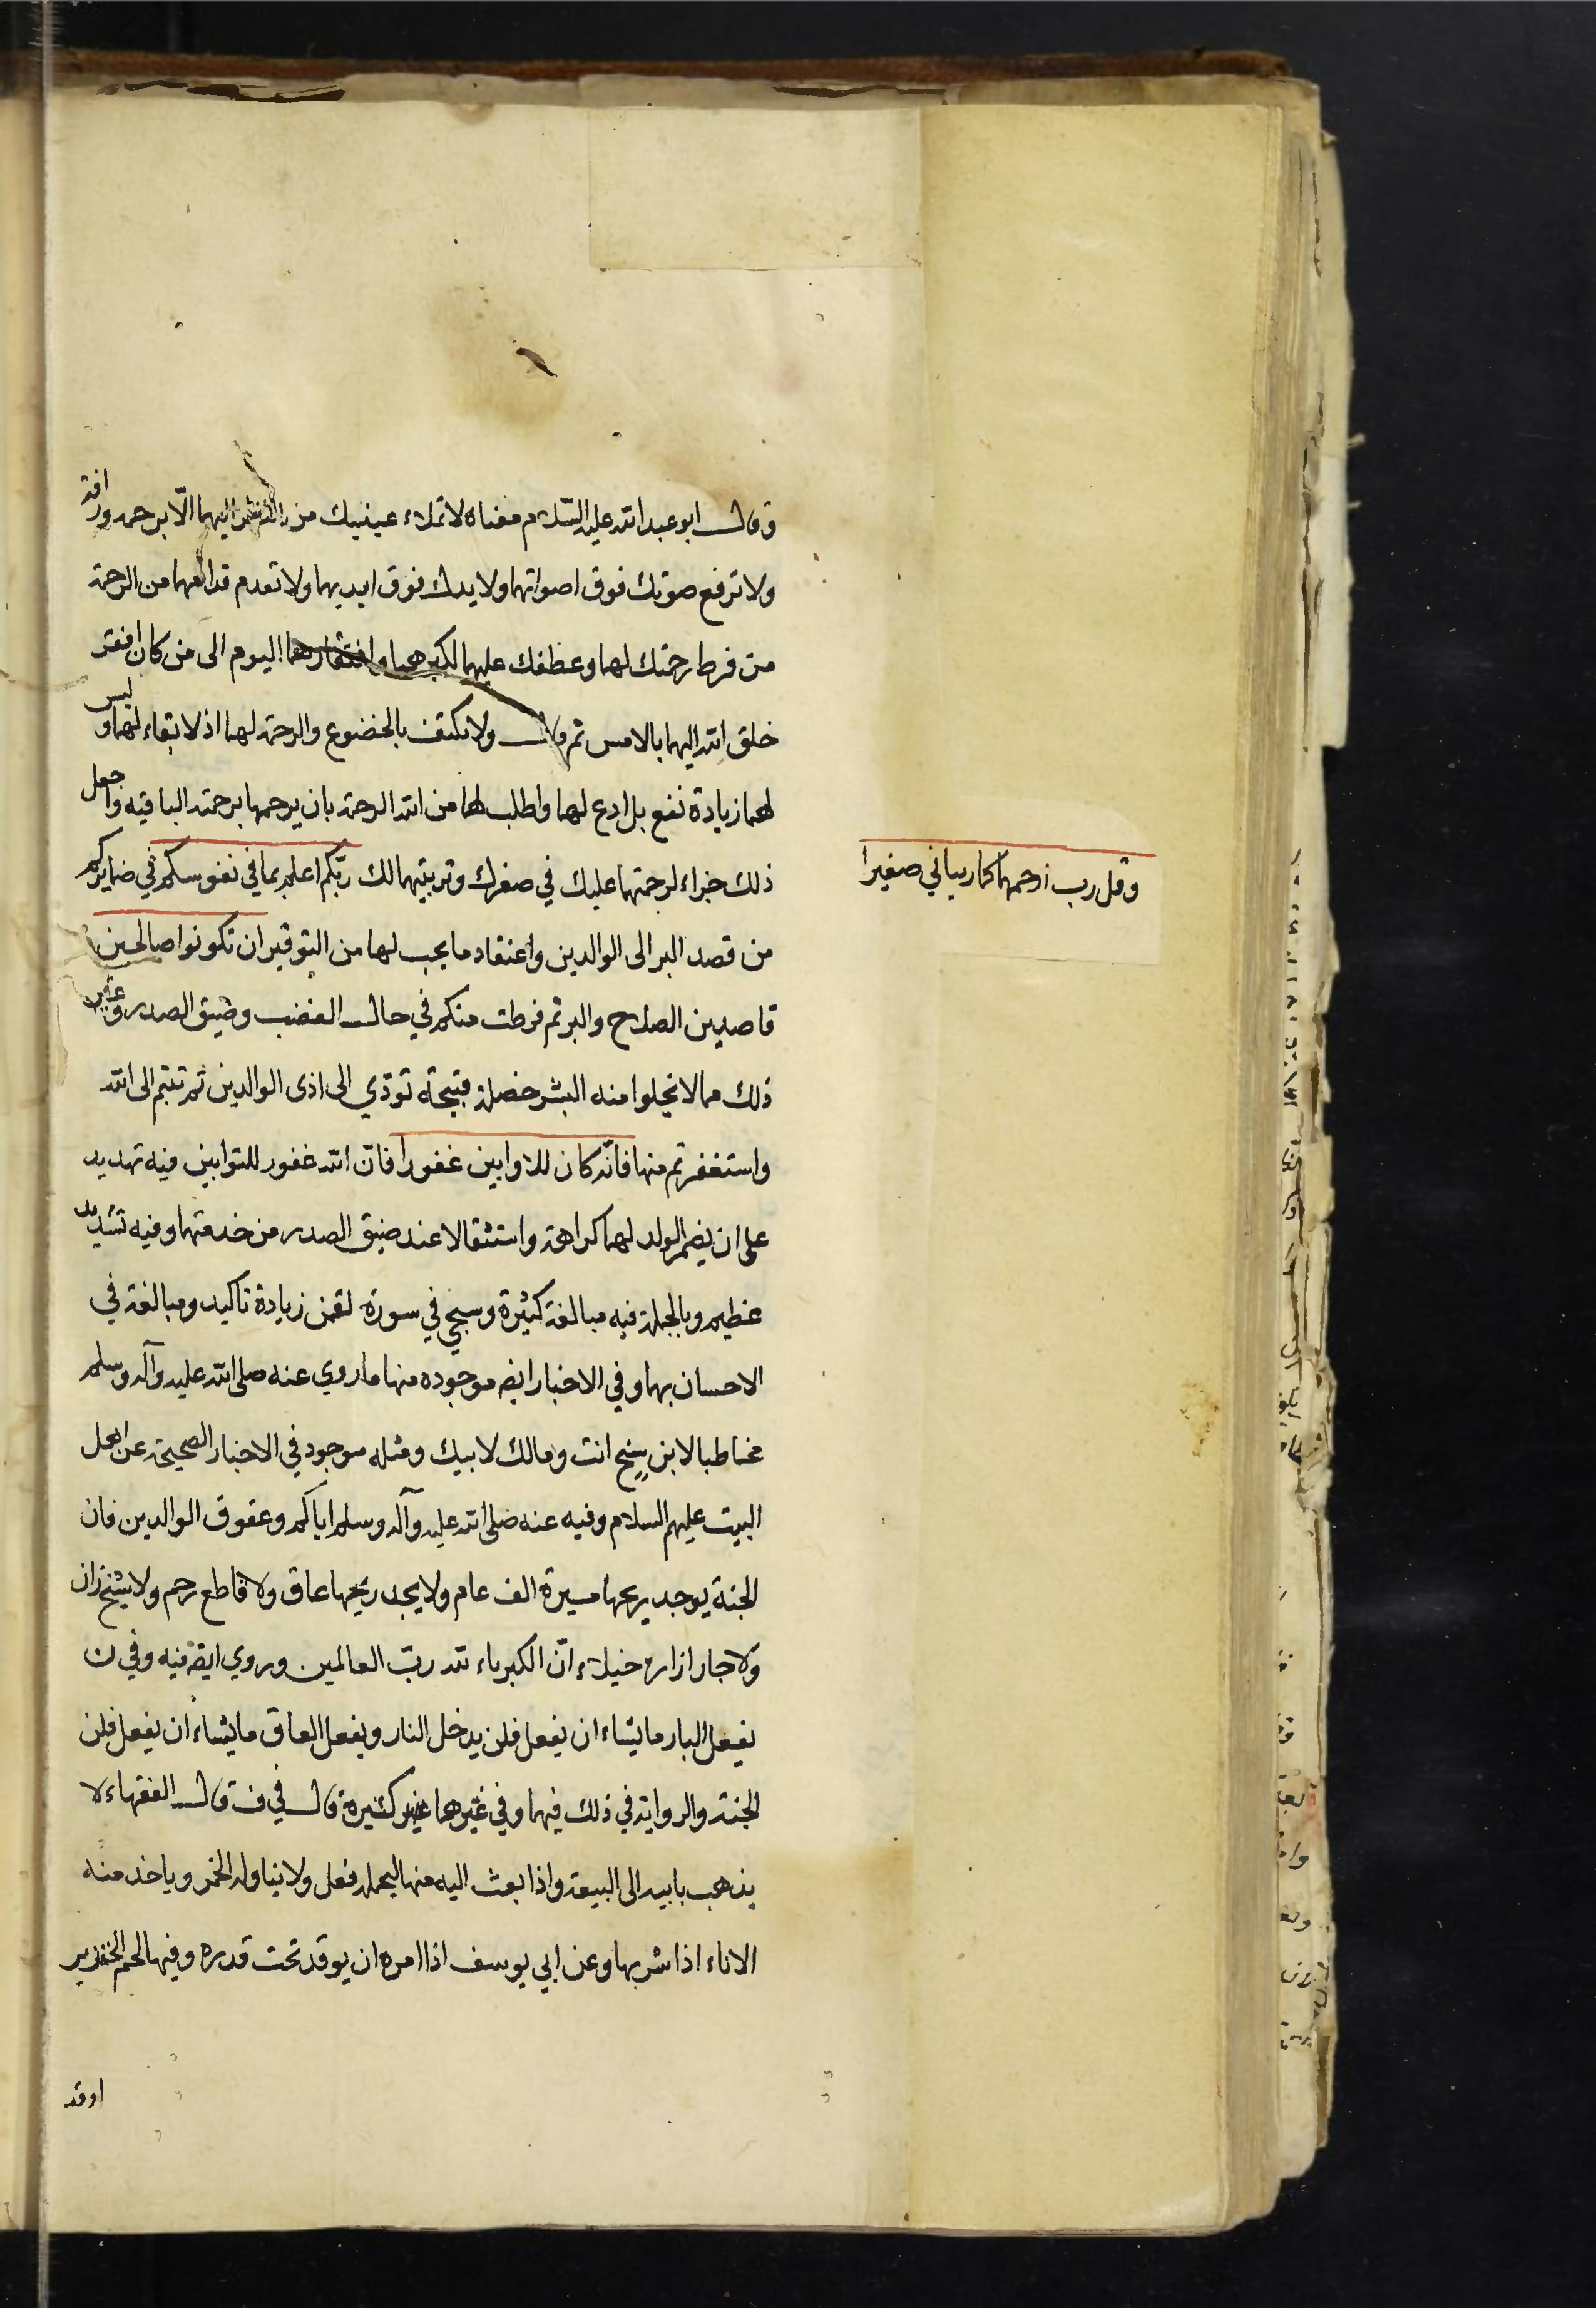 وقال ابو عبد الله عليه السّلام معناه لا تملاء عينيك من النظر اليهما الّا برحمه ورافة
ولا ترفع صوتك فوق اصواتهما ولا يدك فوق ايديهما ولا تقدم قدامهما من الرحمة
من فرط رحمتك لهما وعطفك عليهما لكبرهما وافتقارهما اليوم الى من كان افقر
خلق الله اليهما بالامس ثم قال ولا تكتف بالخضوع والرحمة لهما اذ لا بقاء لهما وليس
لهما زيادة نفع بل ادع لهما واطلب لهما من الله الرحمة بان يرحمهما برحمته الباقيه واجعل
ذلك جزاء لرحمتهما عليك في صغرك وتربيتهما لك ربّكم اعلم بما في نفوسكم في ضمايركم
وقل رب ارحمهما كما ربياني صغيرا
من قصد البر الى الوالدين واعتقاد ما يجب لهما من التوقير ان تكونوا صالحين
قاصدين الصلاح والبر ثم فرطت منكم في حال الغضب وضيق الصدر وغير
ذلك مما لا يخلوا منه البشر خصلة قبيحة تودّي الى اذى الوالدين ثم تبتم الى الله
واستغفرتم منها فانّه كان للاوابين غفورا فانّ الله غفور للتوابين فيه تهديد
على ان يضمر الولد لهما كراهة واستثقالا عند ضيق الصدر من خدمتهما وفيه تشديد
عظيم وبالجملة فيه مبالغة كثيرة وسيجي في سورة لقمن زيادة تاكيد ومبالغة في
الاحسان بهما وفي الاخبار ايضه موجوده منها ما روي عنه صلى الله عليه وآله وسلم
مخاطبا لابن انت ومالك لابيك ومثله موجود في الاخبار الصحيحة عن اهل
البيت عليهم السلام وفيه عنه صلى الله عليه وآله وسلم اياكم وعقوق الوالدين فان
الجنة يوجد ريحها مسيرة الف عام ولا يجد ريحها عاق ولا قاطع رحم ولا شيخ زان
ولا جار ازاره خيلاء انّ الكبرياء لله ربّ العالمين وروي ايضه فيه وفي ن
يفعل البار ما يشاء ان يفعل فلن يدخل النار ويفعل العاق ما يشاء ان يفعل فلن
الجنة والرواية في ذلك فيهما وفي غيرهما غير كثيرة قال في ف قال الفقهاء لا
يذهب بابيه الى البيعة واذا بعث اليه منها ليحمله فعل ولا يناوله الخمر وياخذ منه
الاناء اذا شربها وعن ابي يوسف اذا امره ان يوقد تحت قدره وفيها لحم الخنزير
اوقد